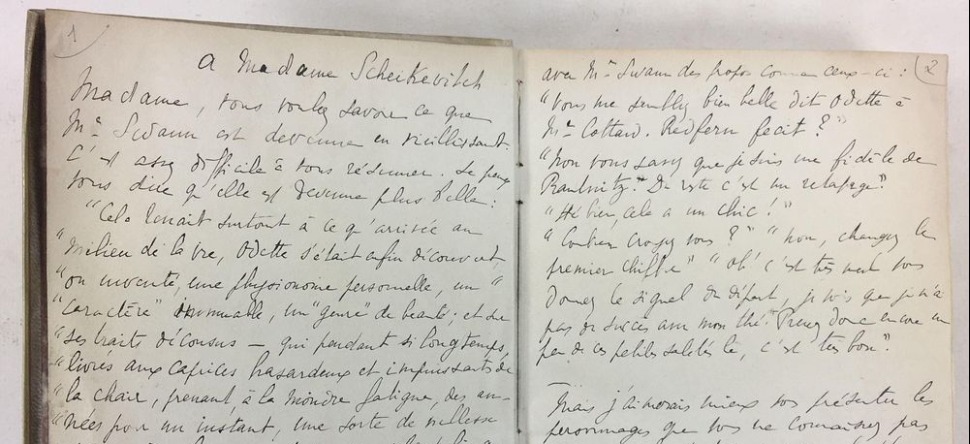 1
A Madame Scheikevitch
Madame, vous voulez savoir ce que
Me Swann est devenue en vieillissant.
C'est assez difficile à vous résumer. Je peux
vous dire qu'elle est devenue plus belle :
"Cela tenait surtout à ce qu'arrivée au
"milieu de la vie, Odette s'était enfin découvert,
"ou inventé, une physionomie personnelle, un "
"caractère" immuable, un "genre" de beauté ; et sur
"ses traits décousus — qui pendant si longtemps,
"livrés aux caprices hasardeux et impuissants de
"la chair, prenant à la moindre fatigue, des an-
"nées pour un instant, une sorte de vieillesse
2
avec Me Swann des propos comme ceux-ci :
"Vous me semblez bien belle dit Odette à
Me Cottard. Redfern fecit ?"
"Non vous savez que je suis une fidèle de
Raudnitz. Du reste c'est un retapage."
"Hé bien, cela a un chic !"
"Combien croyez vous ?" "Non, changez le
premier chiffre" "Oh ! c'est très mal vous
donnez le signal du départ, je vois que je n'ai
pas de succès avec mon thé. Prenez donc encore un
peu de ces petites saletés là, c'est très bon."
Mais j'aimerais mieux vous présenter les
personnages que vous ne connaissez pas